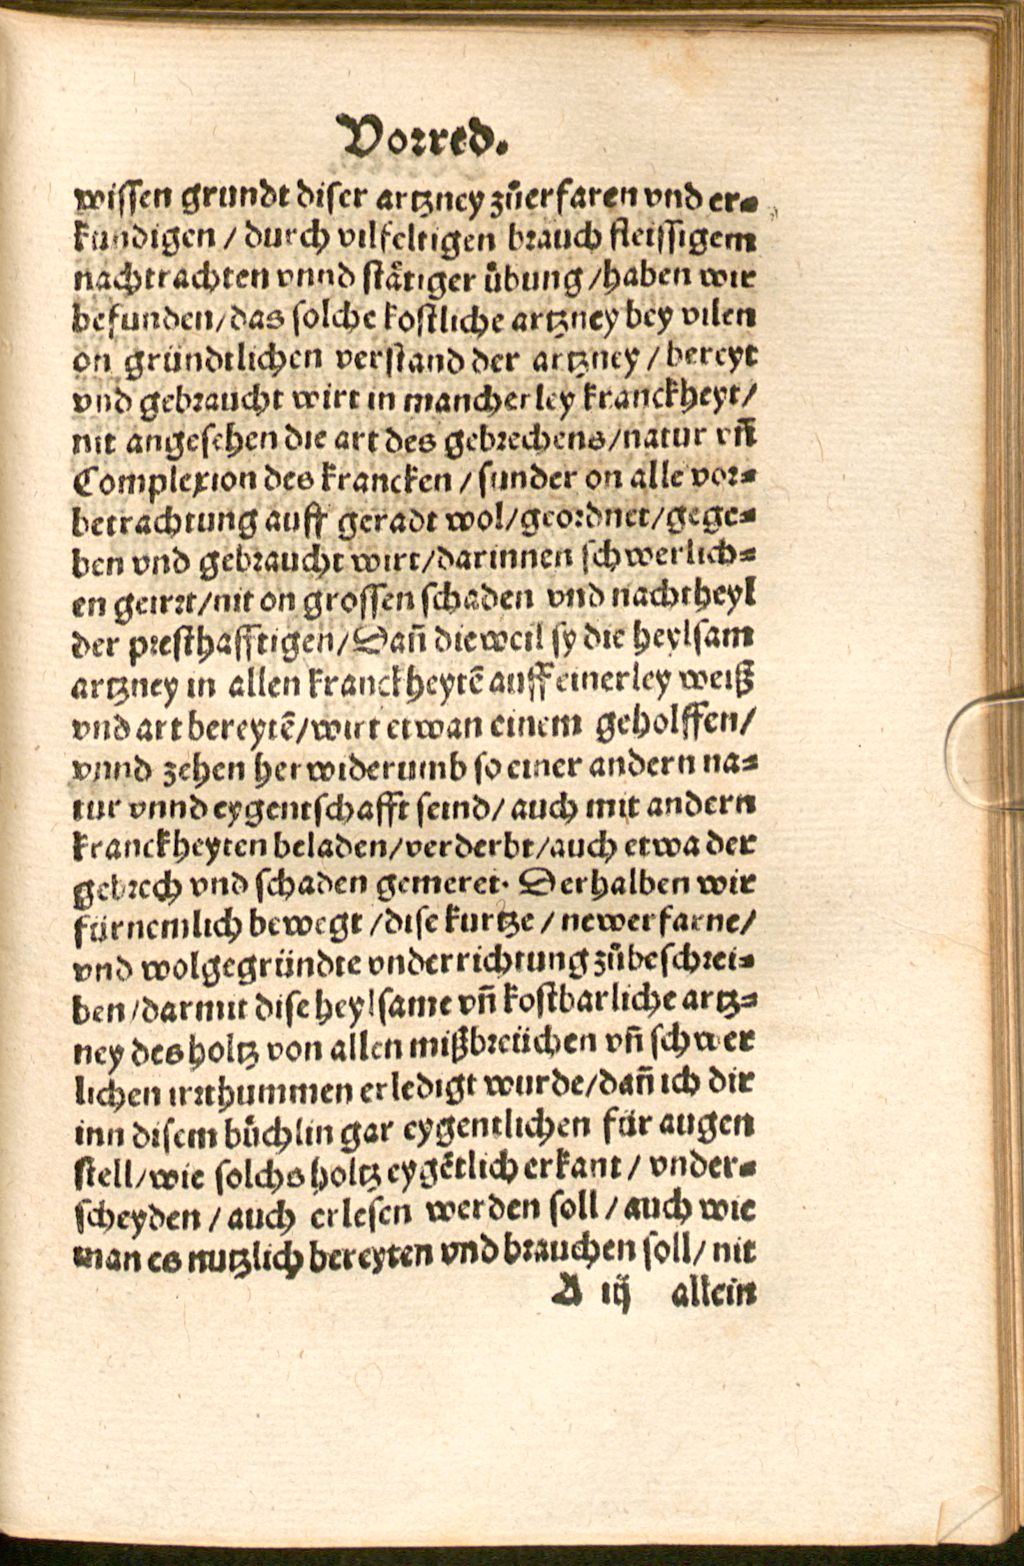 Vorred.
wissen grundt diser artzney zůerfaren vnd er-
kundigen / durch vilfeltigen brauch fleissigem
nachtrachten vnnd stätiger übung /haben wir
befunden/das solche kostliche artzney bey vilen
on gründtlichen verstand der artzney / bereyt
vnd gebraucht wirt in mancherley kranckheyt/
nit angesehen die art des gebrechens/natur vñ
Complexion des krancken / sunder on alle vor-
betrachtung auff geradt wol/geordnet/gege-
ben vnd gebraucht wirt/darinnen schwerlich-
en geirrt/nit on grossen schaden vnd nachtheyl
der presthafftigen/Dañ dieweil sy die heylsam
artzney in allen kranckheytē auff einerley weiß
vnd art bereytē/wirt etwan einem geholffen/
vnnd zehen herwiderumb so einer andern na-
tur vnnd eygentschafft seind/ auch mit andern
kranckheyten beladen/verderbt/auch etwa der
gebrech vnd schaden gemeret. Derhalben wir
fürnemlich bewegt /dise kurtze / newerfarne/
vnd wolgegründte vnderrichtung zůbeschrei-
ben/darmit dise heylsame vñ kostbarliche artz-
ney des holtz von allen mißbreüchen vñ schwer
lichen irrthummen erledigt wurde/dañ ich dir
inn disem büchlin gar eygentlichen für augen
stell/wie solchs holtz eygētlich erkant / vnder-
scheyden / auch erlesen werden soll / auch wie
man es nutzlich bereyten vnd brauchen soll/ nit
A iij allein